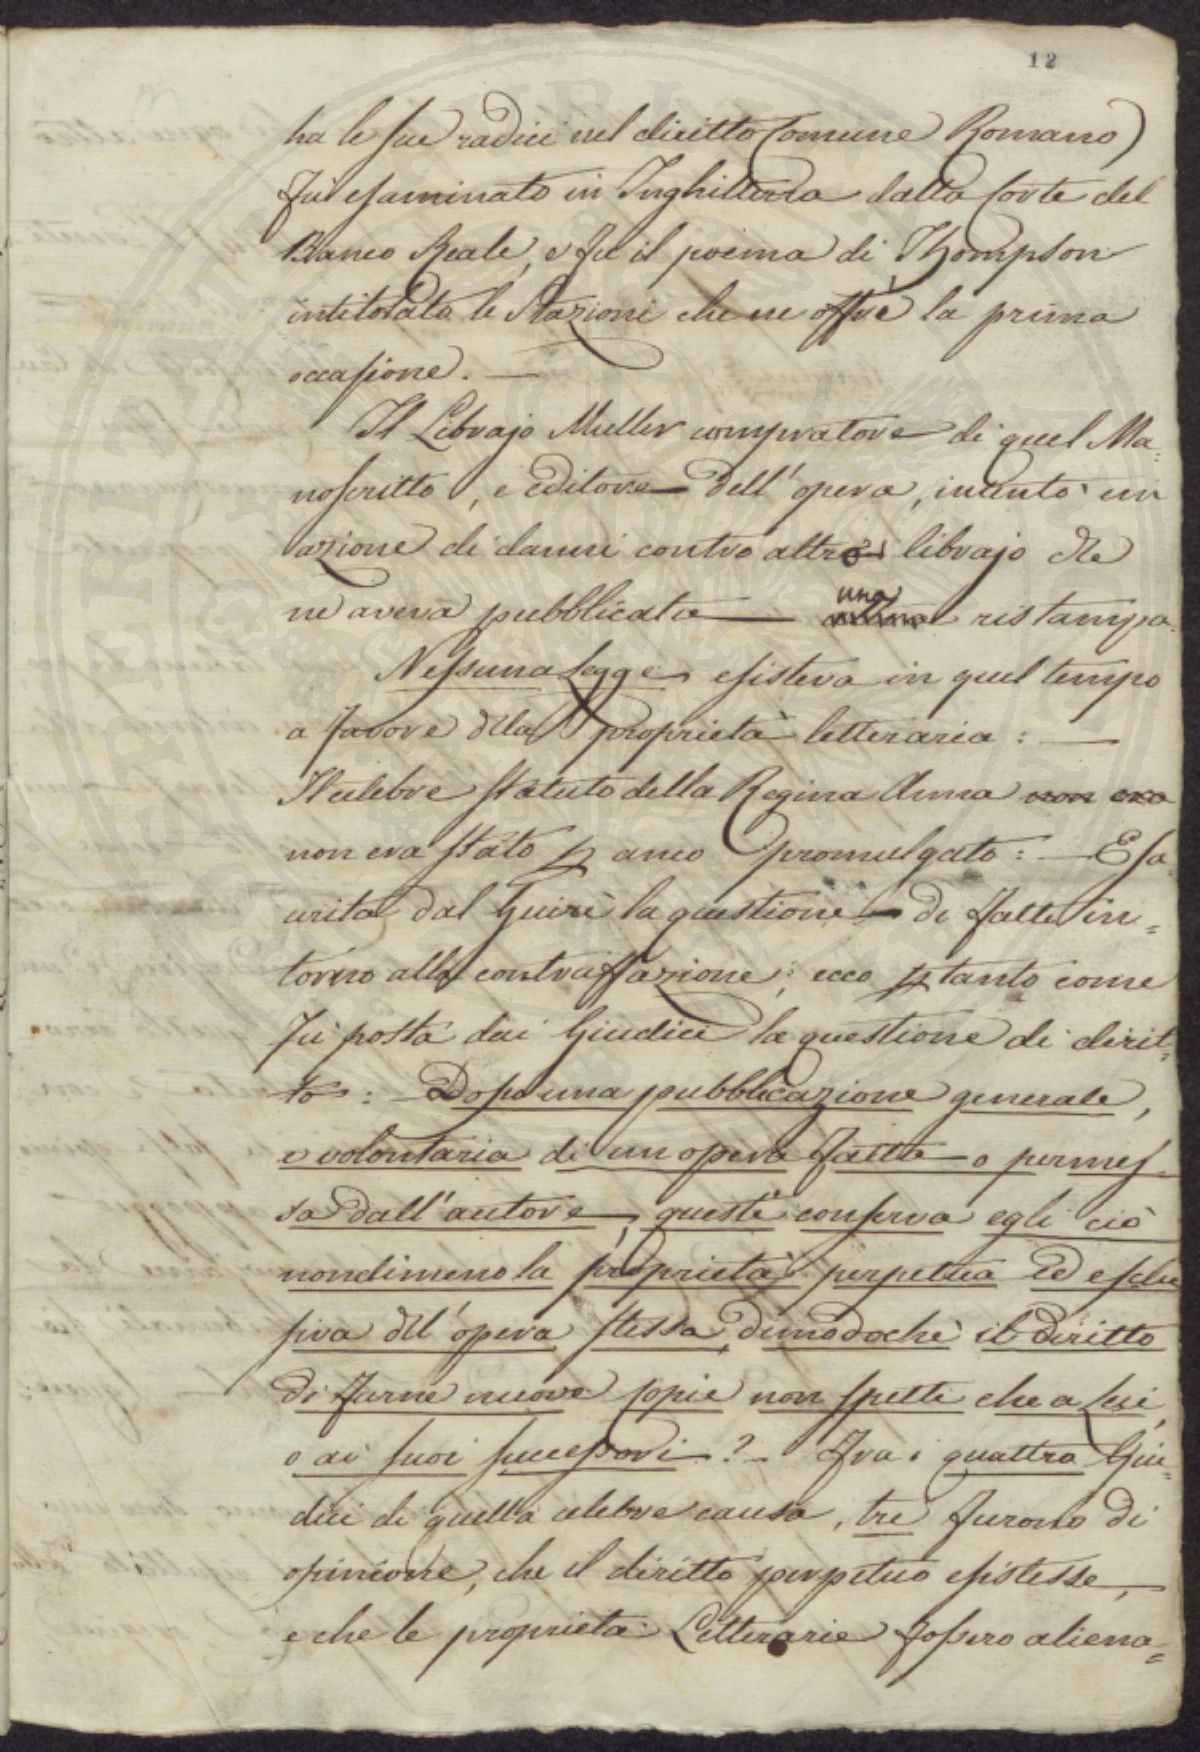 12
ha le sue radici nel diritto Comune Romano)
fù esaminato in Inghilterra dalla Corte del
Banco Reale, e fu il poema di Thompson
intitolato le Stazioni che ne offrè la prima
occasione. —
Il Librajo Muller compratore di quel Ma=
noscritto, e editore dell' opera, intentò un
azione di danni contro altro librajo che
ne aveva pubblicata — una ristampa.
Nessuna Legge esisteva in quel tempo
a favore della proprietà letteraria: —
Il celebre statuto della Regina Anna non era
non era stato p anco promulgato: — Esa
urita dal Giurì la questione di fatto in=
torno alla contraffazione; ecco ptanto come
fù posta dai Giudici la questione di dirit=
to: — Dopo una pubblicazione generale,
e volontaria di un opera fatta o permes=
sa dall' autore, questi conserva egli ciò
nondimeno la proprietà perpetua ed esclu
siva dell' opera stessa, dimodochè il diritto
di farne nuove copie non spetti che a Lui,
o ai suoi successori? — Fra i quattro Giu=
dici di quella celebre causa, tre furono di
opinione, che il diritto perpetuo esistesse,
e che le proprietà Letterarie fossero aliena=